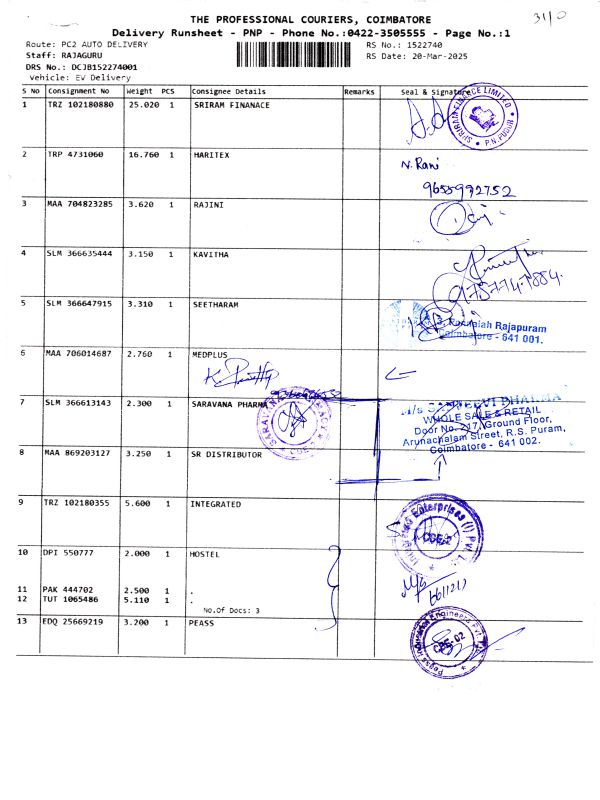 THE PROFESSIONAL COURIERS, COIMBATORE
31/0
Delivery Runsheet - PNP - Phone No.:0422-3505555 - Page No.:1
Route: PC2 AUTO DELIVERY
RS No.: 1522740
Staff: RAJAGURU
RS Date: 20-Mar-2025
DRS No.: DCJB152274001
Vehicle: EV Delivery
S No Consignment No Weight PCS Consignee Details Remarks Seal & Signature
1 TRZ 102180880 25.020 1 SRIRAM FINANACE
SHRIRAM FINANCE LIMITED
* P.N. PUDUR *
2 TRP 4731060 16.760 1 HARITEX
N. Rani
9655992752
3 MAA 704823285 3.620 1 RAJINI
4 SLM 366635444 3.150 1 KAVITHA
5 SLM 366647915 3.310 1 SEETHARAM
Rajapuram
Coimbatore - 641 001.
6 MAA 706014687 2.760 1 MEDPLUS
7 SLM 366613143 2.300 1 SARAVANA PHARMA
SARAVANA
M/s
WHOLE SALE & RETAIL
Door No. 217, Ground Floor,
Arunachalam Street, R.S. Puram,
Coimbatore - 641 002.
8 MAA 869203127 3.250 1 SR DISTRIBUTOR
9 TRZ 102180355 5.600 1 INTEGRATED
Enterprises (I) Pvt. Ltd.
CBE-2
10 DPI 550777 2.000 1 HOSTEL
11 PAK 444702 2.500 1 .
12 TUT 1065486 5.110 1 .
No.Of Docs: 3
13 EDQ 25669219 3.200 1 PEASS
Engineers Pvt.
CBE-02